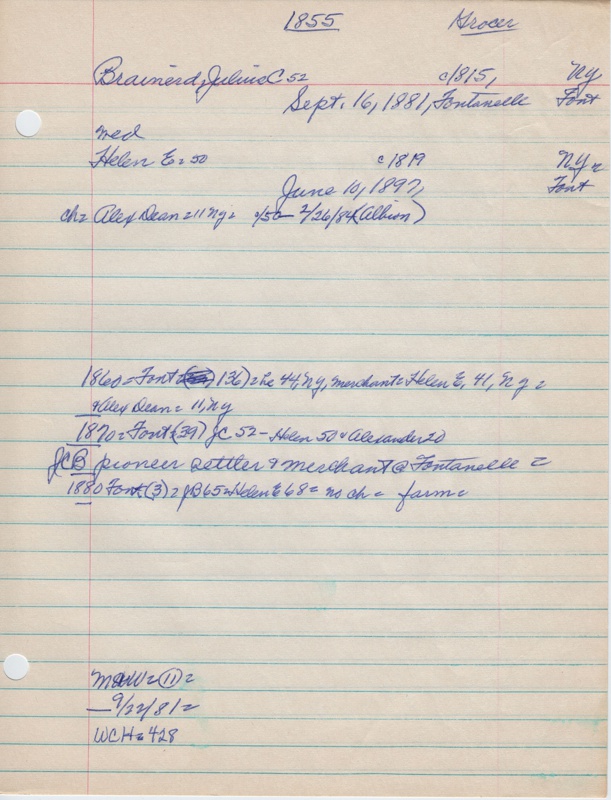 1855 Grocer
Brainerd, Julius C 52 c1815, Ny
Sept. 16, 1881, Fontanelle Font
med
Helen E = 50 c1819 Ny =
June 10, 1897, Font
ch = Alex Dean = 11 Ny = c/50 - 2/26/84 (Albion)
1860 = Font ( 136) = he 44, Ny, merchant = Helen E, 41, Ny =
& Alex Dean = 11, Ny
1870 = Font (39) JC 52 - Helen 50 & Alexander 20
JCB pioneer settler & merchant @ Fontanelle =
1880 Font (3) = JB 65 = Helen E 68 = no ch = farm =
M&W = 11 =
9/22/81 =
WCH = 428